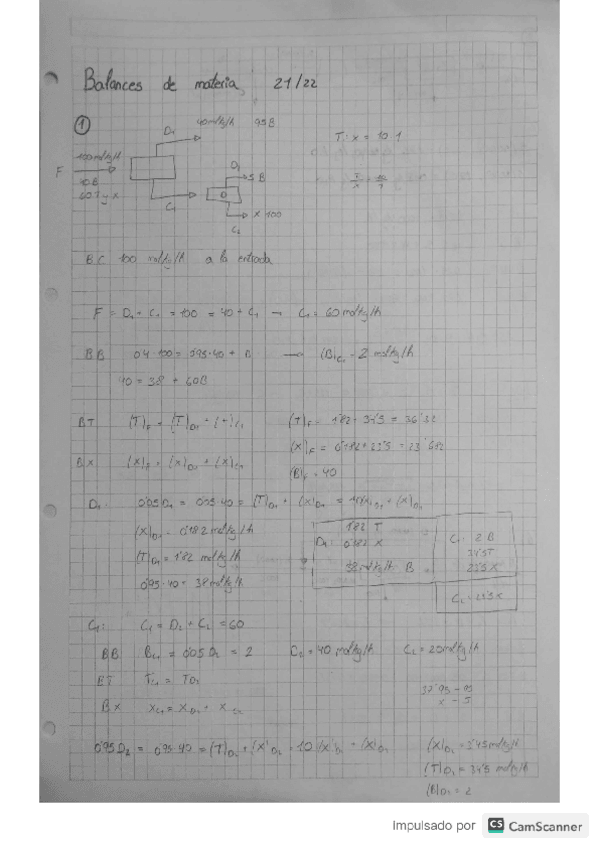 Balances de materia, 21/22
①
D₁ 40 molkg/h 95B
100 molkg/h
F
40B
60 T y X
C₁
D₂
5B
D
X 100
C₂
T:x = 10:1
T/x = 10/1
B.C 100 molkg/h a la entrada
F = D₁ + C₁ = 100 = 40 + C₁ → C₁ = 60 molkg/h
BB 0'4·100 = 0'95·40 + B → (B)C₁ = 2 molkg/h
40 = 38 + 60B
BT (T)F = (T)D₁ + (T)C₁ (T)F = 1'82 + 34'5 = 36'32
(X)F = 0'182 + 23'5 = 23'682
BX (X)F = (X)D₁ + (X)C₁
(B)F = 40
D₁: 0'05 D₁ = 0'05·40 = (T)D₁ + (X)D₁ = 10(X)D₁ + (X)D₁
(X)D₁ = 0'182 molkg/h
(T)D₁ = 1'82 molkg/h
0'95·40 = 38 molkg/h
D₁: 1'82 T
0'182 X
38 molkg/h B
C₁ = 2B
34'5T
23'5 X
C₂ = 23'5 X
C₁: C₁ = D₂ + C₂ = 60
BB BC₁ = 0'05 D₂ = 2 D₂ = 40 molkg/h C₂ = 20 molkg/h
BT TC₁ = TD₂
BX XC₁ = XD₂ + XC₂
37'95 - 95
x - 5
0'95 D₂ = 0'95·40 = (T)D₂ + (X)D₂ = 10(X)D₂ + (X)D₂
(X)D₂ = 3'45 molkg/h
(T)D₂ = 34'5 molkg/h
(B)D₂ = 2
Impulsado por CS CamScanner